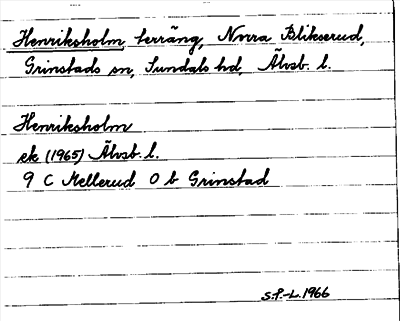 Henriksholm, terräng, Norra Blikserud,
Grinstads sn, Sundals hd, Älvsb. l.
Henriksholm
ek (1965) Älvsb. l.
9 C Mellerud 0 b Grinstad
S.P.-L. 1966